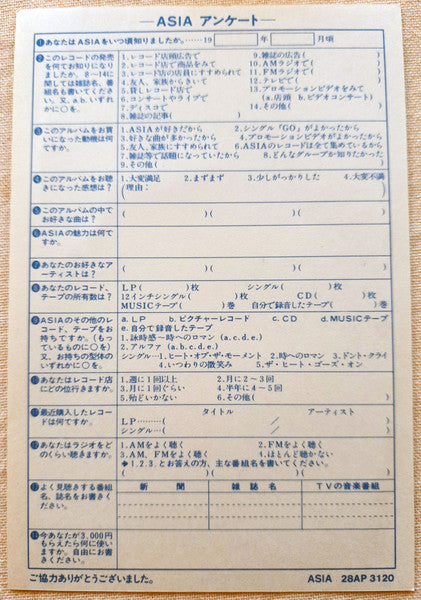 ASIA アンケート
❶あなたはASIAをいつ頃知りましたか。……19 年 月頃
❷このレコードの発売を何でお知りになりましたか。8〜14に関しては雑誌名、番組名も書いてください。又、a.b.いずれかに○を。
1.レコード店頭広告で
2.レコード店で商品をみて
3.レコード店の店員にすすめられて
4.友人、家族からきいて
5.貸しレコード店で
6.コンサートやライブで
7.ディスコで
8.雑誌の記事( )
9.雑誌の広告( )
10.AMラジオで( )
11.FMラジオで( )
12.テレビで( )
13.プロモーションビデオをみて
(a.店頭 b.ビデオコンサート)
14.その他( )
❸このアルバムをお買いになった動機は何ですか。
1.ASIAが好きだから 2.シングル「GO」がよかったから
3.好きな曲が多かったから 4.プロモーションビデオがよかったから
5.友人、家族にすすめられて 6.ASIAのレコードは全て集めているから
7.雑誌等で話題になっていたから 8.どんなグループか知りたかった
9.その他( )
❹このアルバムをお聴きになった感想は?
1.大変満足 2.まずまず 3.少しがっかりした 4.大変不満
(理由: )
❺このアルバムの中でお好きな曲は?
( )( )( )
❻ASIAの魅力は何ですか。
❼あなたのお好きなアーティストは?
( )( )( )
❽あなたのレコード、テープの所有数は?
LP( )枚 シングル( )枚
12インチシングル( )枚 CD( )枚
MUSICテープ( )巻 自分で録音したテープ( )巻
❾ASIAのその他のレコード、テープをお持ちですか。(もっているものに○を)又、お持ちの型体のいずれかに○を。
a.LP b.ピクチャーレコード c.CD d.MUSICテープ
e.自分で録音したテープ
1.詠時感〜時へのロマン (a.c.d.e.)
2.アルファ (a.b.c.d.e.)
シングル…1.ヒート・オブ・ザ・モーメント 2.時へのロマン 3.ドント・クライ
4.いつわりの微笑み 5.ザ・ヒート・ゴーズ・オン
❿あなたはレコード店にどの位行きますか。
1.週に1回以上 2.月に2〜3回
3.月に1回ぐらい 4.半年に4〜5回
5.殆どいかない 6.その他( )
⓫最近購入したレコードは何ですか。
タイトル アーティスト
LP………( / )
シングル…( / )
⓬あなたはラジオをどのくらい聴きますか。
1.AMをよく聴く 2.FMをよく聴く
3.AM、FMをよく聴く 4.ほとんど聴かない
◆1.2.3.とお答えの方、主な番組名を書いてください。
( )
⓭よく見聴きする番組名、誌名をお書きください。
新聞 雑誌名 TVの音楽番組
⓮今あなたが3,000円もらえたら何に使いますか。自由にお書きください。
ご協力ありがとうございました。 ASIA 28AP 3120